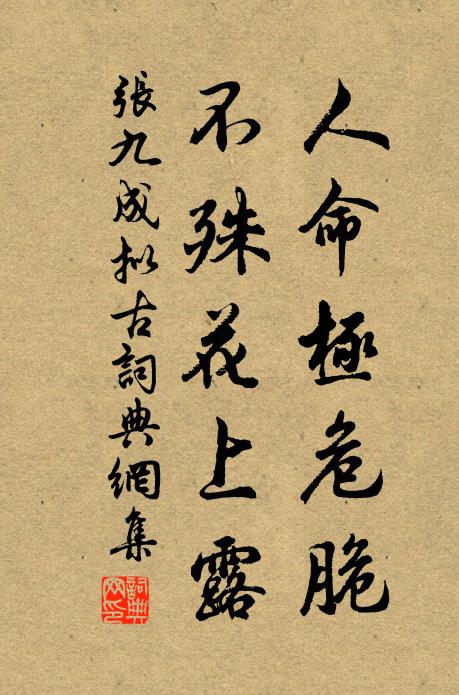 人命極危脆
不殊花上露
張九成拟古詞典網集
詞典網印